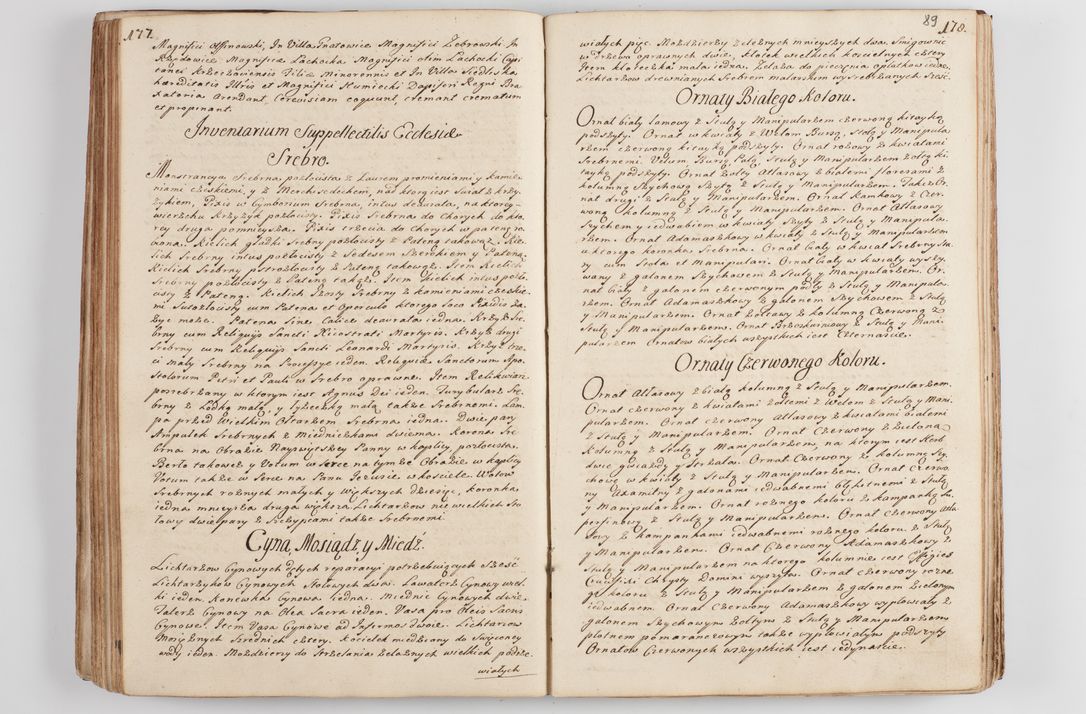 177.
Magnifici Ossowski, In Villa Gnatowice Magnifici Zebrowski In
Rzędowice Magnificæ Lachocka Magnifici olim Lachocki Capi
tanei Krzeczoviensis Filiæ Minorennis et In Villa Siedliska
hæreditatis Illris et Magnifici Dapiferi Regni Bra
xatoria Arendant, Cerevisiam coquunt, cremant crematum
et propinant.
Inventarium Suppellectilis Ecclesiæ
Srebro.
Monstrancya Srebrna pozłocista z Laurem promieniami y kamie
niami czeskiemi, y z Merchisedechem, nad ktorą iest Swiat z krzy,
zykiem, Pixis w Cymborium Srebrna, intus deaurata, na ktorey
wierzchu krzyzyk pozłocisty. Pixis Srebrna do Chorych do kto,
rey druga pomnieysza. Pixis trzecia do Chorych w patenę ro
biona. Kielich gładki Srebny pozłocisty z Pateną takowąz. Kie,
lich Srebrny intus pozłocisty z Sedesem Szerokiem y Pateną.
Kielich Srebrny pstrozłocisty z Pateną takowąz. Item Kielich
Srebrny pozłocisty z Pateną takąz. Item Kielich intus pozło
cisty z Pateną. Kielich Szosty Srebrny z kamieniami czeskie
mi Sutozłocisty cum Patena et operculo ktorego loco Pixidis za
zyc moze. Patena Sine Calice deaurata iedna. Krzyz Sre
brny cum Reliquijs Sancti Nicostrati Martyris. Krzyz drugi
Srebrny cum Reliquijs Sancti Leonardi Martyris. Krzyz trze
ci mały Srebrny na Processye ieden. Reliquiæ Sanctorum Apo
stolorum Petri et Pauli w Srebro oprawne. Item Relikwiarz
posrebrzany w ktorym iest Agnus Dei ieden. Turybularz Sre
brny z Łodką małą, y łyzeczką małą takze Srebrnemi. Lam,
pa przed Wielkim Ołtarzem Srebrna iedna. Dwie pary
Ampułek Srebrnych z Miedniczkami dwiema. Korona Sre
brna na Obrazie Nayswiętszey Panny w kaplicy pozłocista.
Berło takowez y Votum w serce na tymze Obrazie w kaplicy
Votum takze w Serce na Panu Jezusie w kosciele. Wotow
Srebrnych roznych małych y większych dziesięc, koronka
iedna mnieysza druga większa. Lichtarzow niewielkich Sto
łowy dwie pary z Szczypcami takze Srebrnemi.
Cyna, Mosiądz, y Miedź.
Lichtarzow Cynowych dętych reparacyi potrzebuiących Szesc.
Lichtarzykow Cynowych Stołowych dwa. Lawaterz Cynowy wiel
ki ieden. Konewka Cynowa iedna. Miednic Cynowych dwie.
Talerz Cynowy na Olea Sacra ieden. Vasa pro Oleis Sacris
Cynowe. Item Vasa Cynowe ad Infirmos dwoie. Lichtarzow
Mosięznych Srednich cztery. Kociełek miedziany do Swięconey
wody ieden. Mozdzierzy do Strzelania zelaznych wielkich podzie
wiałych
89
178.
wiałych pięc. Mozdzierzy zelaznych mnieyszych dwa. Smigownic
w drzewo oprawnych dwie, kłotek wielkich kowalnych cztery
Item kłoteczka mała iedna. Zelaza do pieczenia opłatkow iedne,
Lichtarzow drewnianych Srebrem malarskim wysrebrzanych Szesc.
Ornaty Białego Koloru.
Ornat biały Lamowy z Stułą y Manipularzem czerwoną kitayką
podszyty. Ornat w kwiaty z Welum Bursą, Stułą y Manipula
rzem czerwoną kitayką podszyty. Ornat rozowy z kwiatami
Srebrnemi. Velum Bursą Pallą, Stułą y Manipularzem zołtą ki,
tayką podszyty. Ornat Zołty Atłasowy z białemi floresami z
kolumną Szychową Szytą z Stułą y Manipularzem. Takiz Or
nat drugi z Stułą y Manipularzem. Ornat Ramkowy z czer,
woną kolumną z Stułą y Manipularzem. Ornat Atłasowy
Szychem y iedwabiem w kwiaty Szyty z Stułą y Manipula,
rzem. Ornat Adamaszkowy w kwiaty z Stułą y Manipularzem
u ktorego koronka Srebrna. Ornat biały w kwiat Srebrny Sta
ry cum Stola et Manipulari. Ornat biały w kwiaty wyszy,
wany z galonem Szychowem z Stułą y Manipularzem. Or,
nat biały z galonem czerwonym podły z Stułą y Manipula,
rzem. Ornat Adamaszkowy z galonem Szychowem z Stułą
y Manipularzem. Ornat Zołtawy z kolumną Czerwoną z
Stułą y Manipularzem. Ornat Brzoskurniowy z Stułą y Mani
pularzem Ornatow białych wszystkich iest Czternascie.
Ornaty Czerwonego Koloru.
Ornat Atłasowy z białą kolumną z Stułą y Manipularzem.
Ornat czerwony z kwiatami zołtemi z Welem z Stułą y Mani,
pularzem. Ornat czerwony Atłasowy z kwiatami białemi
z Stułą y Manipularzem. Ornat Czerwony z Zieloną
Kolumną z Stułą y Manipularzem, na ktorym iest Herb
dwie gwiazdy y Strzała. Ornat Czerwony z kolumną Szy,
chową w kwiaty z Stułą y Manipularzem. Ornat czerwo,
ny Axamitny z galonami iedwabnemi błękitnemi z Stułą
y Manipularzem. Ornat roznego koloru z kampanką Su,
perfinowy z Stułą y Manipularzem. Ornat czerwony Atła
sowy z kampankami iedwabnemi roznego koloru. z Stułą
y Manipularzem. Ornat Czerwony Adamaszkowy z
Stułą y Manipularzem na ktorego kolumnie iest Effigies
Crucifixi Christi Domini wyszyta. Ornat czerwony rozne
go koloru z Stułą y Manipularzem z galonem Zielonym
iedwabnem. Ornat Czerwony Adamaszkowy wypłowiały z
galonem Szychowym Zołtym z Stułą y Manipularzem
płotnem pomaranczowym takze wypłowiałym podszyty
Ornatow Czerwonych wszystkich iest iedynascie.